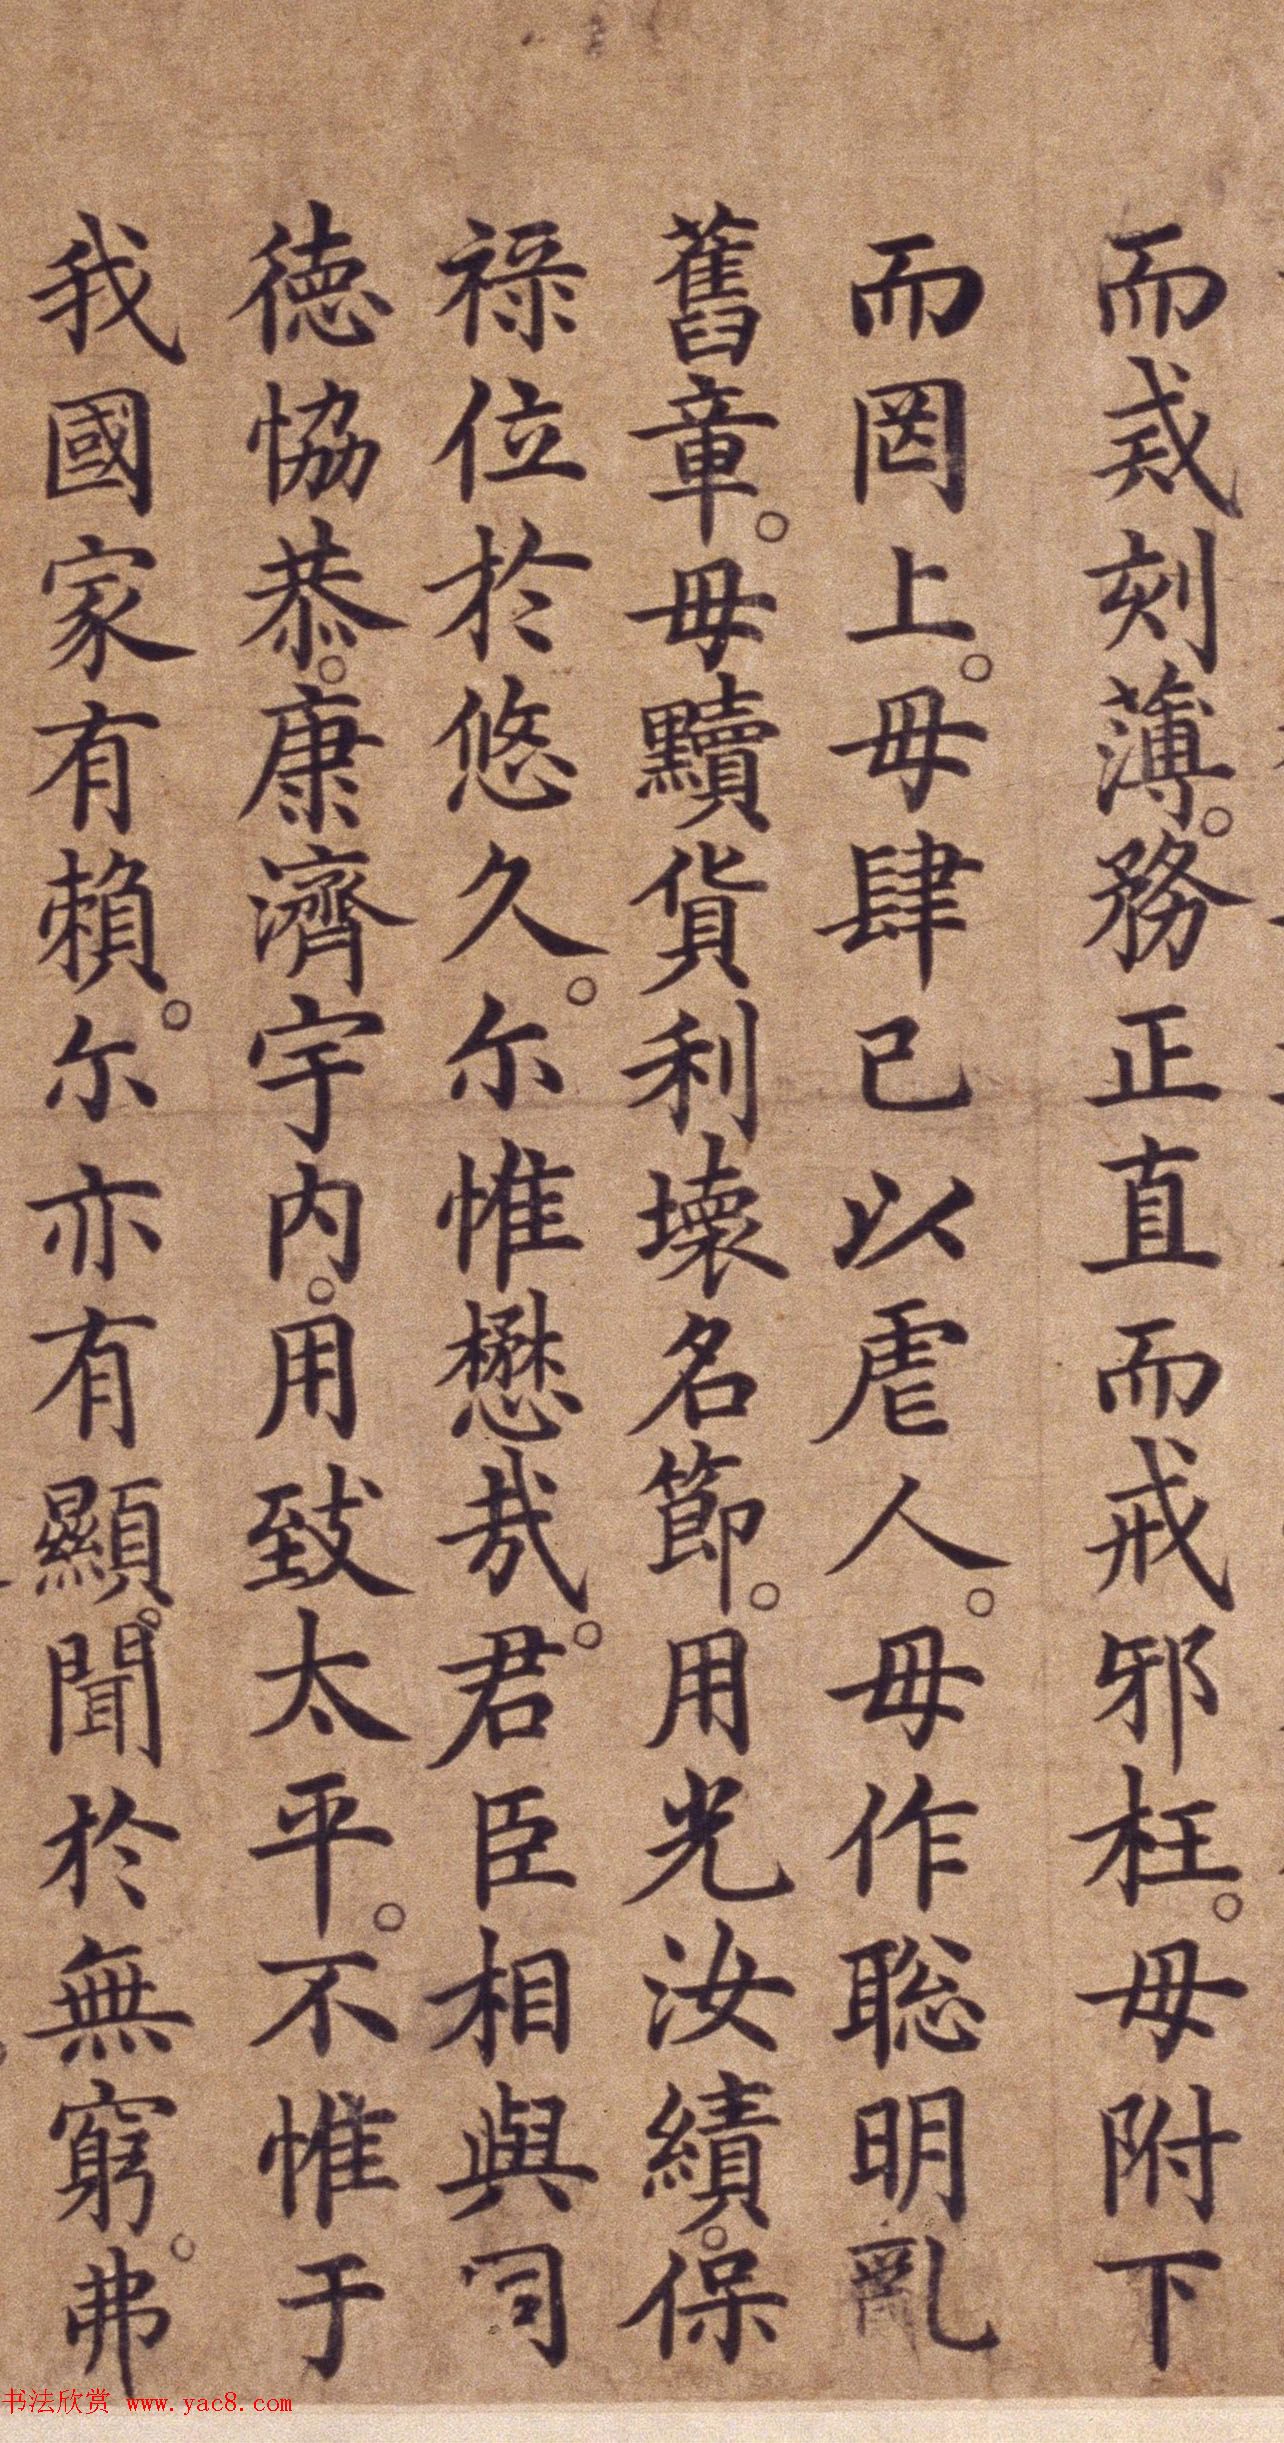 而戒刻薄。務正直而戒邪枉。毋附下
而罔上。毋肆己以虐人。毋作聡明亂
舊章。毋黷貨利壞名節。用光汝績。保
禄位於悠久。尔惟懋哉。君臣相與同
德恊恭。康濟宇内。用致太平。不惟于
我國家有賴。尔亦有顯聞於無窮。弗
书法欣赏 www.yac8.com